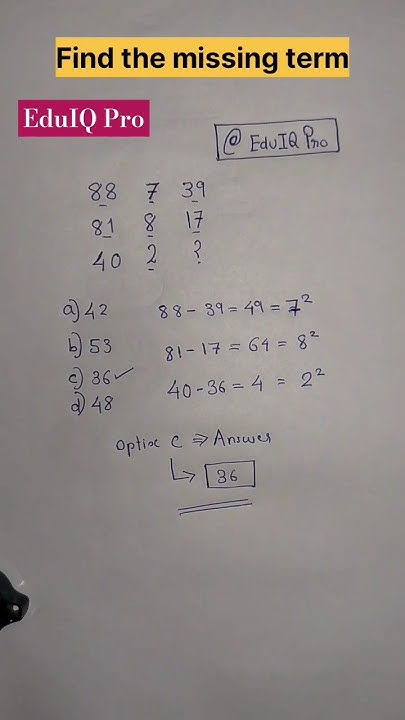 Find the missing term
EduIQ Pro
@ EduIQ Pro
88 7 39
81 8 17
40 2 ?
a) 42
b) 53
c) 36 ✓
d) 48
88 - 39 = 49 = 7²
81 - 17 = 64 = 8²
40 - 36 = 4 = 2²
Option C ⇒ Answer
↳ 36